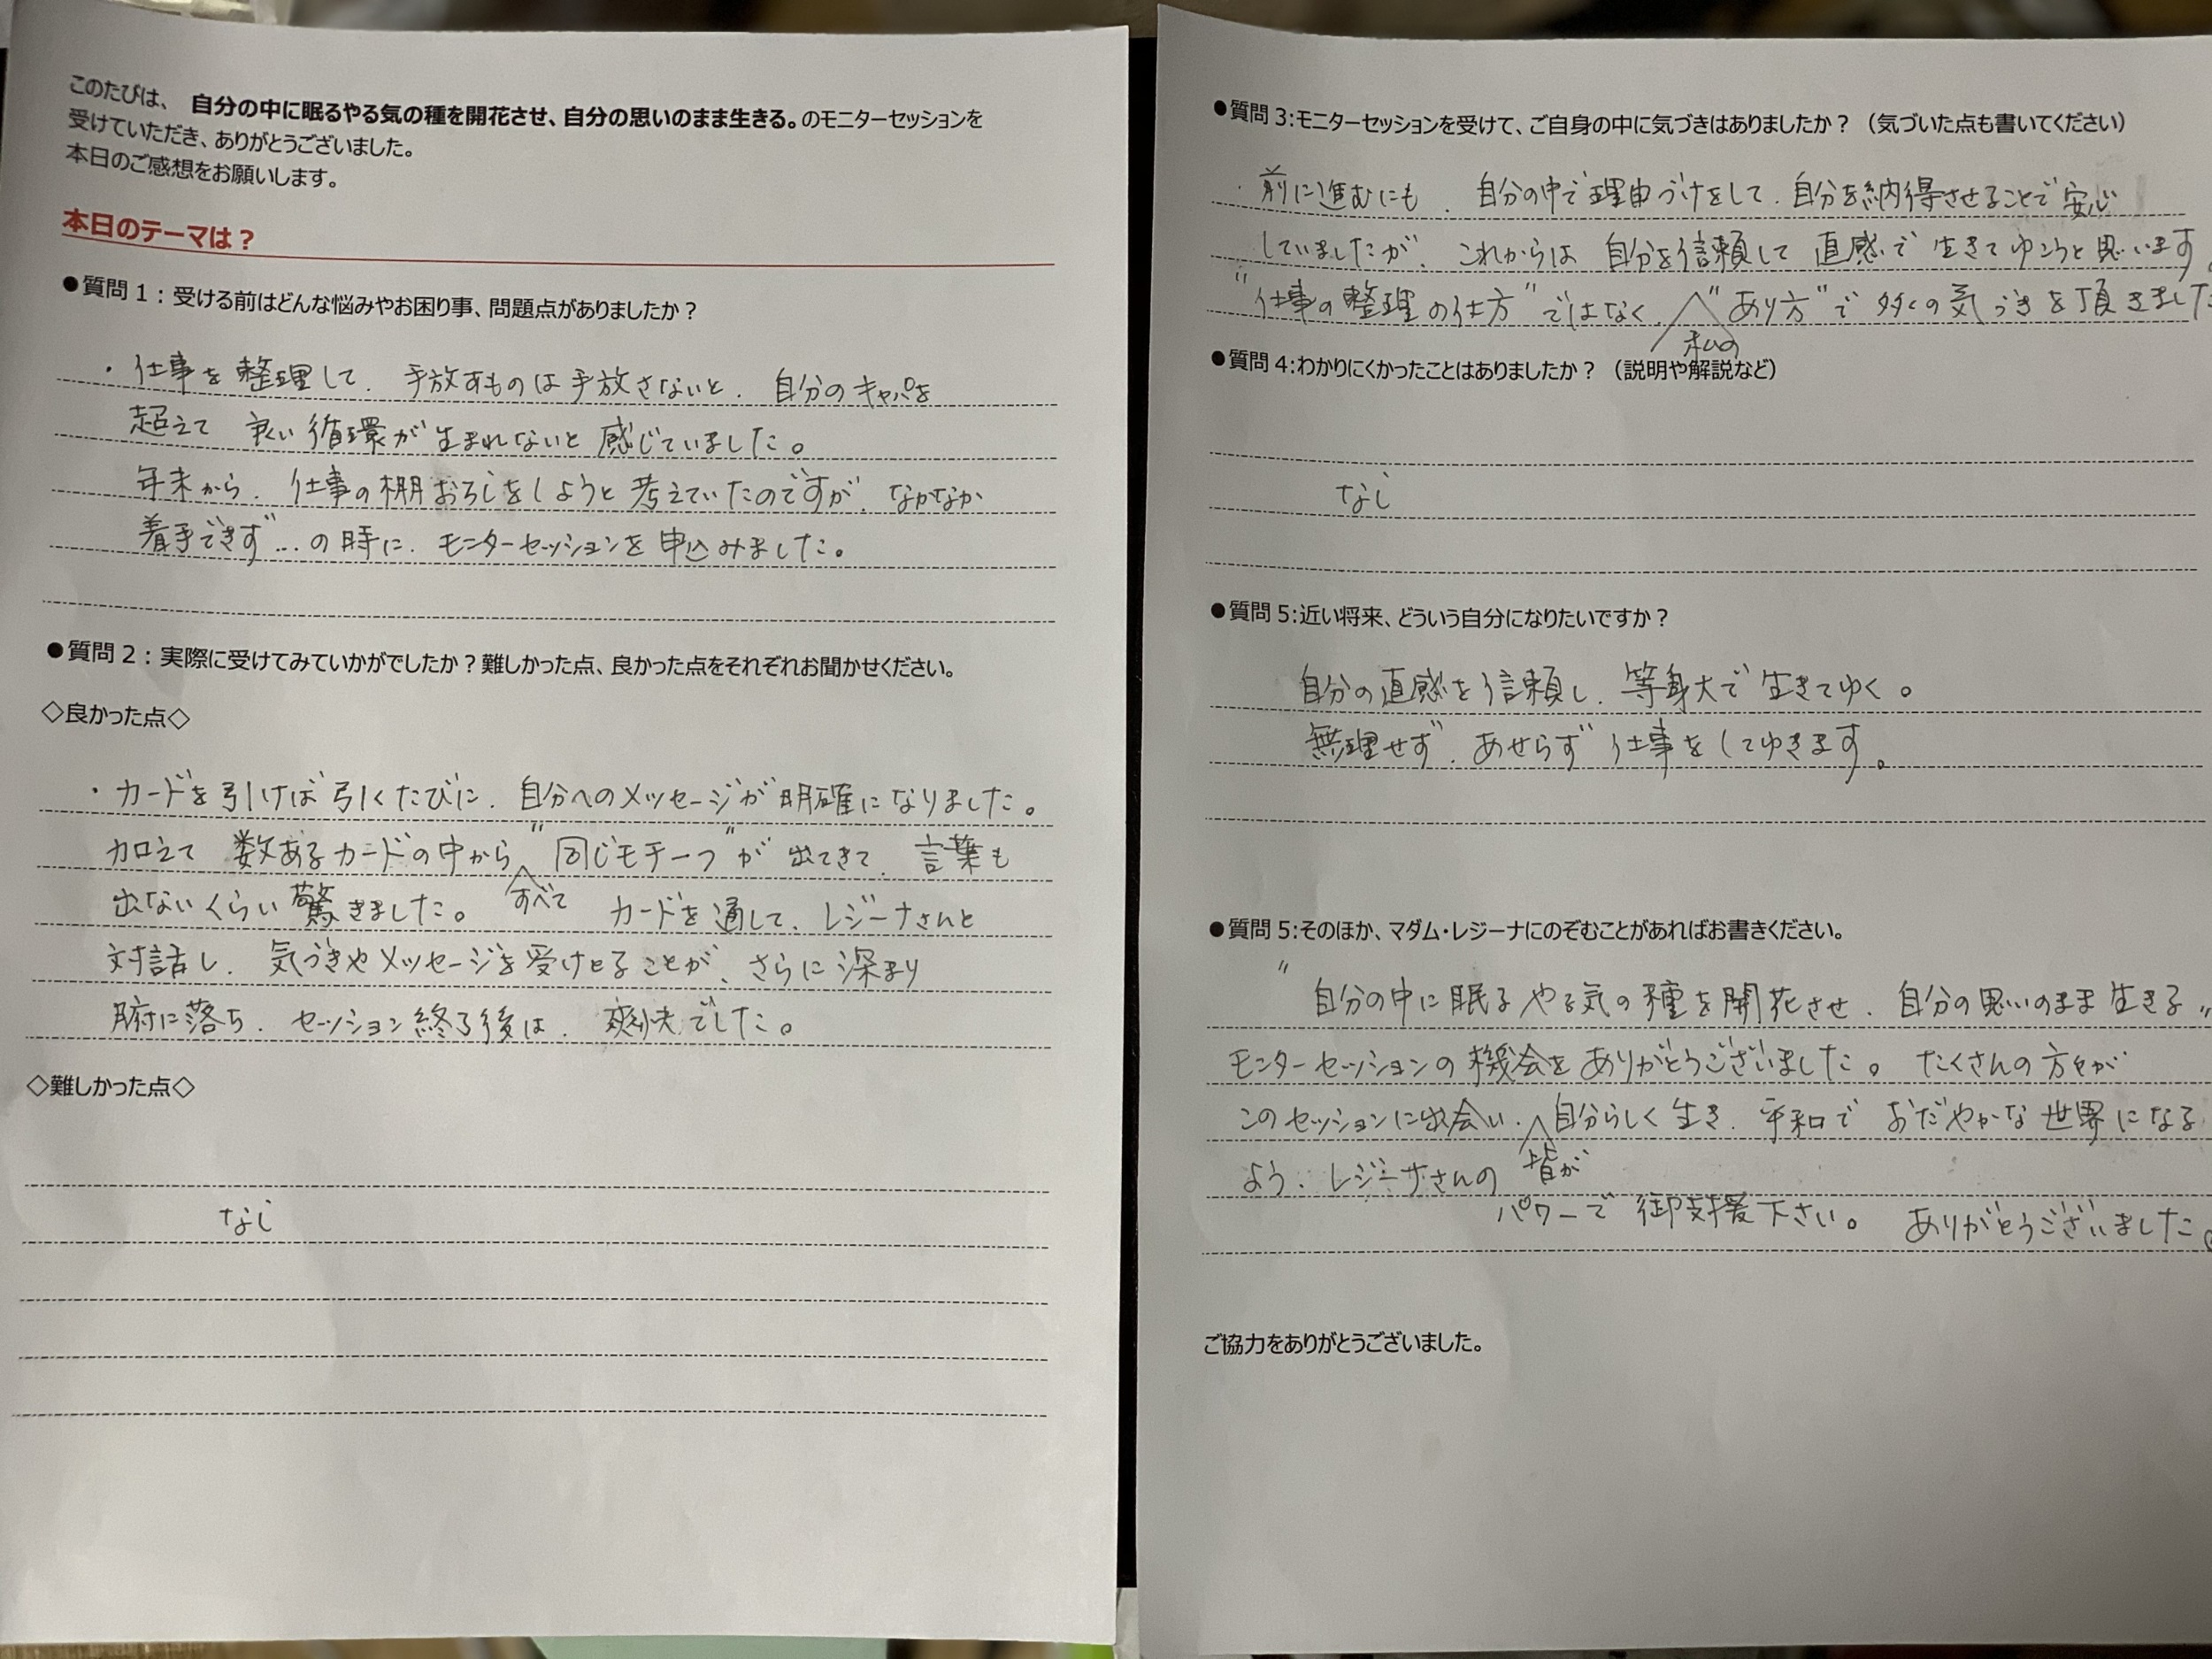 このたびは、 自分の中に眠るやる気の種を開花させ、自分の思いのまま生きる。のモニターセッションを
受けていただき、ありがとうございました。
本日のご感想をお願いします。
本日のテーマは？
●質問 1：受ける前はどんな悩みやお困り事、問題点がありましたか？
・仕事を整理して、手放すものは手放さないと、自分のキャパを
超えて 良い循環が生まれないと感じていました。
年末から、仕事の棚おろしをしようと考えていたのですが、なかなか
着手できず…の時に、モニターセッションを申込みました。
●質問 2：実際に受けてみていかがでしたか？難しかった点、良かった点をそれぞれお聞かせください。
◇良かった点◇
・カードを引けば引くたびに、自分へのメッセージが明確になりました。
加えて 数あるカードの中から すべて "同じモチーフ"が出てきて、言葉も
出ないくらい驚きました。 カードを通して、レジーナさんと
対話し、気づきやメッセージを受けとることが、さらに深まり
腑に落ち、セッション終了後は、爽快でした。
◇難しかった点◇
なし
●質問 3:モニターセッションを受けて、ご自身の中に気づきはありましたか？（気づいた点も書いてください）
・前に進むにも、自分の中で理由づけをして、自分を納得させることで安心
していましたが、これからは 自分を信頼して 直感で 生きてゆこうと思います。
"仕事の整理の仕方"ではなく、私の"あり方"で 多くの気づきを頂きました
●質問 4:わかりにくかったことはありましたか？（説明や解説など）
なし
●質問 5:近い将来、どういう自分になりたいですか？
自分の直感を信頼し、等身大で生きてゆく。
無理せず、あせらず 仕事をしてゆきます。
●質問 5:そのほか、マダム・レジーナにのぞむことがあればお書きください。
"自分の中に眠るやる気の種を開花させ、自分の思いのまま生きる"
モニターセッションの機会をありがとうございました。たくさんの方々が
このセッションに出会い、皆が自分らしく生き、平和で おだやかな世界になる
よう、レジーナさんの
パワーで御支援下さい。 ありがとうございました。
ご協力をありがとうございました。